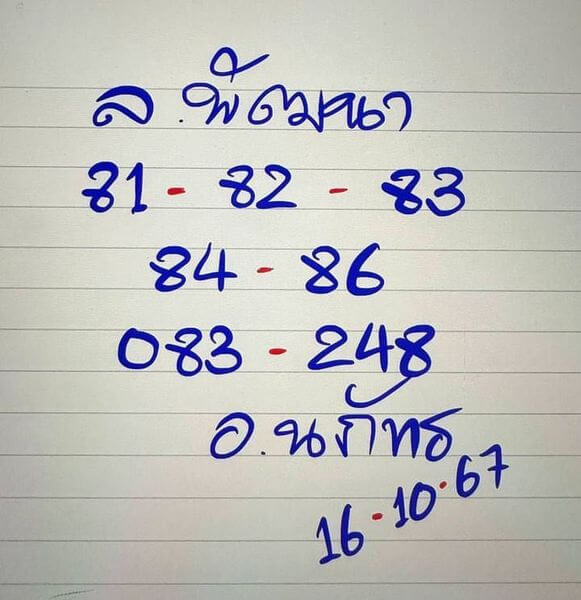 ล.พัฒนา
81 - 82 - 83
84 - 86
083 - 248
อ.นภัทร
16.10.67